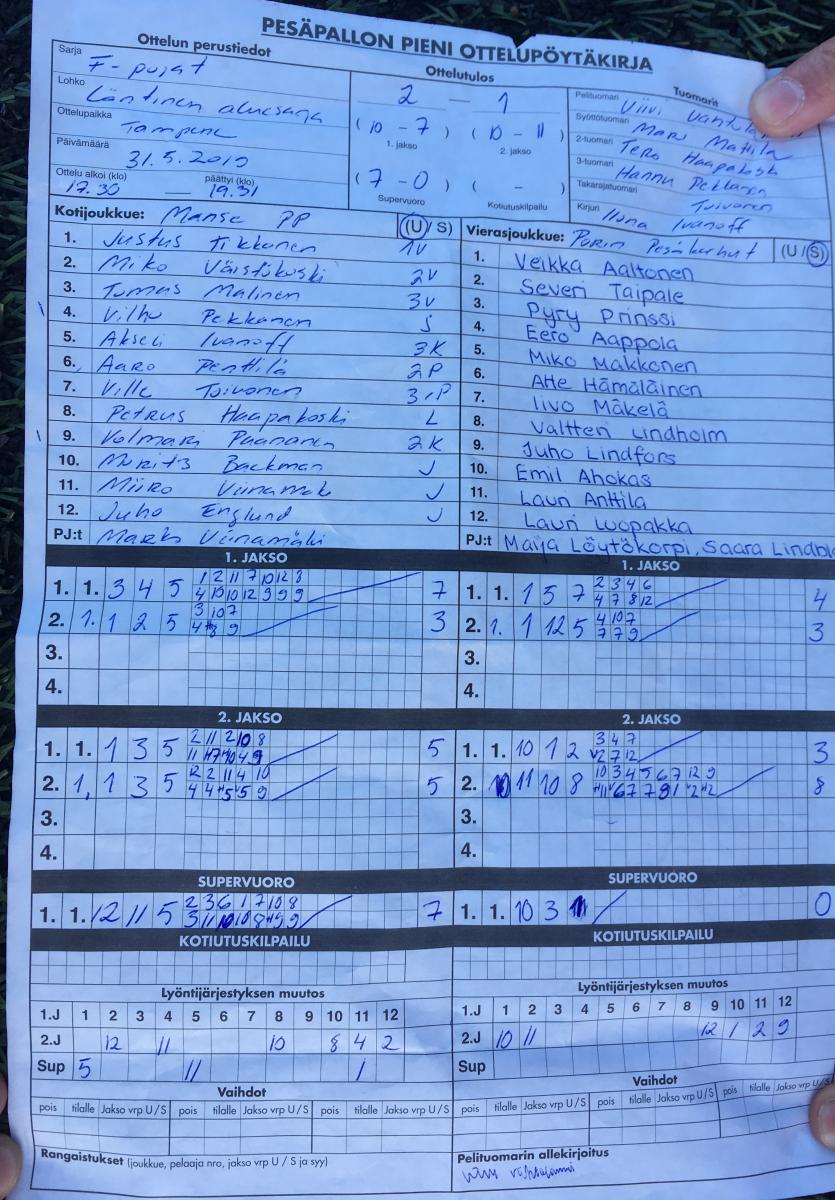 PESÄPALLON PIENI OTTELUPÖYTÄKIRJA
Ottelun perustiedot
Sarja F-pojat
Lohko Läntinen aluesarja
Ottelupaikka Tampere
Päivämäärä 31.5.2019
Ottelu alkoi (klo) 17.30 — päättyi (klo) 19.31
Ottelutulos
2 — 1
(10 - 7) 1. jakso (10 - 11) 2. jakso
(7 - 0) Supervuoro ( - ) Kotiutuskilpailu
Tuomarit
Pelituomari Viivi
Syöttötuomari Mari Mattila
2-tuomari Tero Haapakoski
3-tuomari Hannu Pekkanen
Takarajatuomari Toivonen
Kirjuri Ilona Ivanoff
Kotijoukkue: Manse PP (U/S)
1. Justus Tikkanen 1V
2. Miko Väistökoski 2V
3. Tuomas Malinen 3V
4. Vilho Pekkanen S
5. Akseli Ivanoff 3K
6. Aaro Penttilä 2P
7. Ville Toivonen 3P
8. Petrus Haapakoski L
9. Volmari Paananen 2K
10. Moritz Backman J
11. Miiro J
12. Juho Englund J
PJ:t Marko Viinamäki
Vierasjoukkue: Porin Pesäkarhut (U/S)
1. Veikka Aaltonen
2. Severi Taipale
3. Pyry Prinssi
4. Eero Aappola
5. Miko Makkonen
6. Atte Hämäläinen
7. Iivo Mäkelä
8. Valtteri Lindholm
9. Juho Lindfors
10. Emil Ahokas
11. Lauri Anttila
12. Lauri Luopakka
PJ:t Maija Löytökorpi, Saara Lindblo
1. JAKSO
1. 1. 3 4 5 7
1 2 11 7 10 12 8
4 10 10 12 9 9 9
2. 1. 1 2 5 3
3 10 7
4 8 9
3.
4.
1. JAKSO
1. 1. 1 5 7 4
2 3 4 6
4 7 8 12
2. 1. 1 12 5 3
4 10 7
7 7 9
3.
4.
2. JAKSO
1. 1. 1 3 5 5
2 11 2 10 8
2. 1. 1 3 5 5
12 2 11 4 10
3.
4.
2. JAKSO
1. 1. 10 1 2 3
3 4 7
2. 11 10 8 8
10 3 4 5 6 7 12 9
3.
4.
SUPERVUORO
1. 1. 12 11 5 7
2 3 6 1 7 10 8
SUPERVUORO
1. 1. 10 3 0
KOTIUTUSKILPAILU
KOTIUTUSKILPAILU
Lyöntijärjestyksen muutos
1.J 1 2 3 4 5 6 7 8 9 10 11 12
2.J 12 11 10 8 4 2
Sup 5 11 1
Lyöntijärjestyksen muutos
1.J 1 2 3 4 5 6 7 8 9 10 11 12
2.J 10 11 12 1 2 9
Sup
Vaihdot
pois tilalle Jakso vrp U/S pois tilalle Jakso vrp U/S pois tilalle Jakso vrp U/S
Vaihdot
pois tilalle Jakso vrp U/S pois tilalle Jakso vrp U/S pois tilalle Jakso vrp U/S
Rangaistukset (joukkue, pelaaja nro, jakso vrp U / S ja syy)
Pelituomarin allekirjoitus